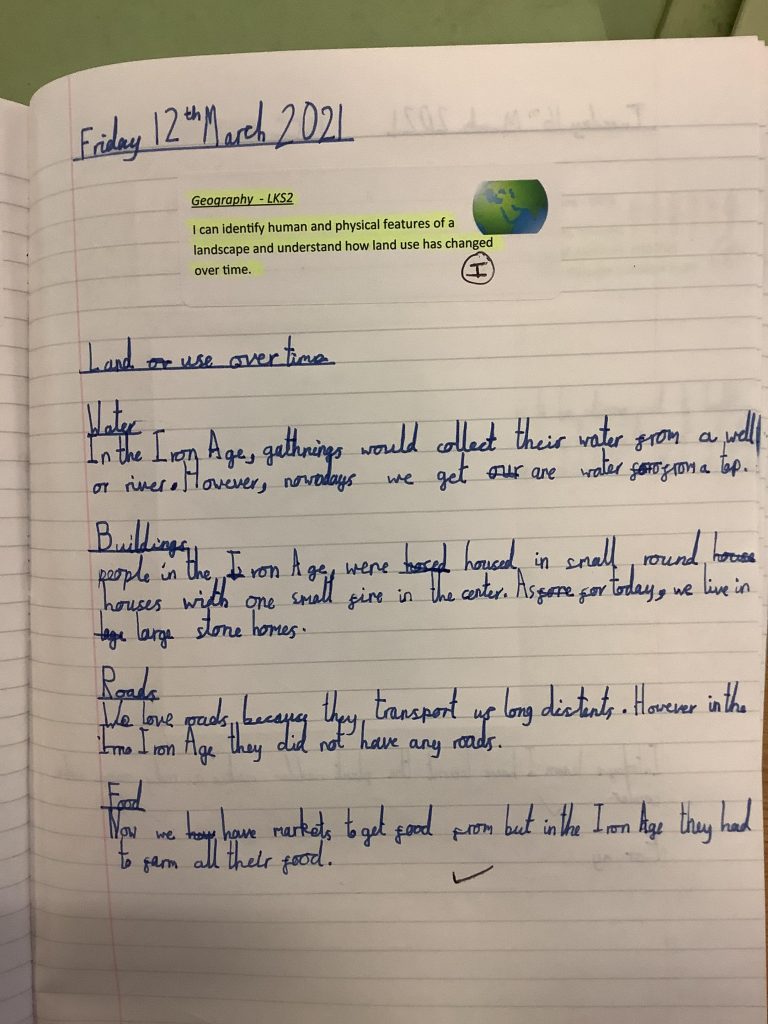 Friday 12th March 2021
Geography - LKS2
I can identify human and physical features of a
landscape and understand how land use has changed
over time.
I
Land or use over time
Water
In the Iron Age, gathnings would collect their water from a well
or river. However, nowadays we get our are water from a tap.
Buildings
people in the Iron Age, were hosed housed in small round house
houses with one small fire in the center. As fore for today, we live in
large stone homes.
Roads
We love roads, because they transport us long distents. However in the
Irno Iron Age they did not have any roads.
Food
Now we have markets to get food from but in the Iron Age they had
to farm all their food.